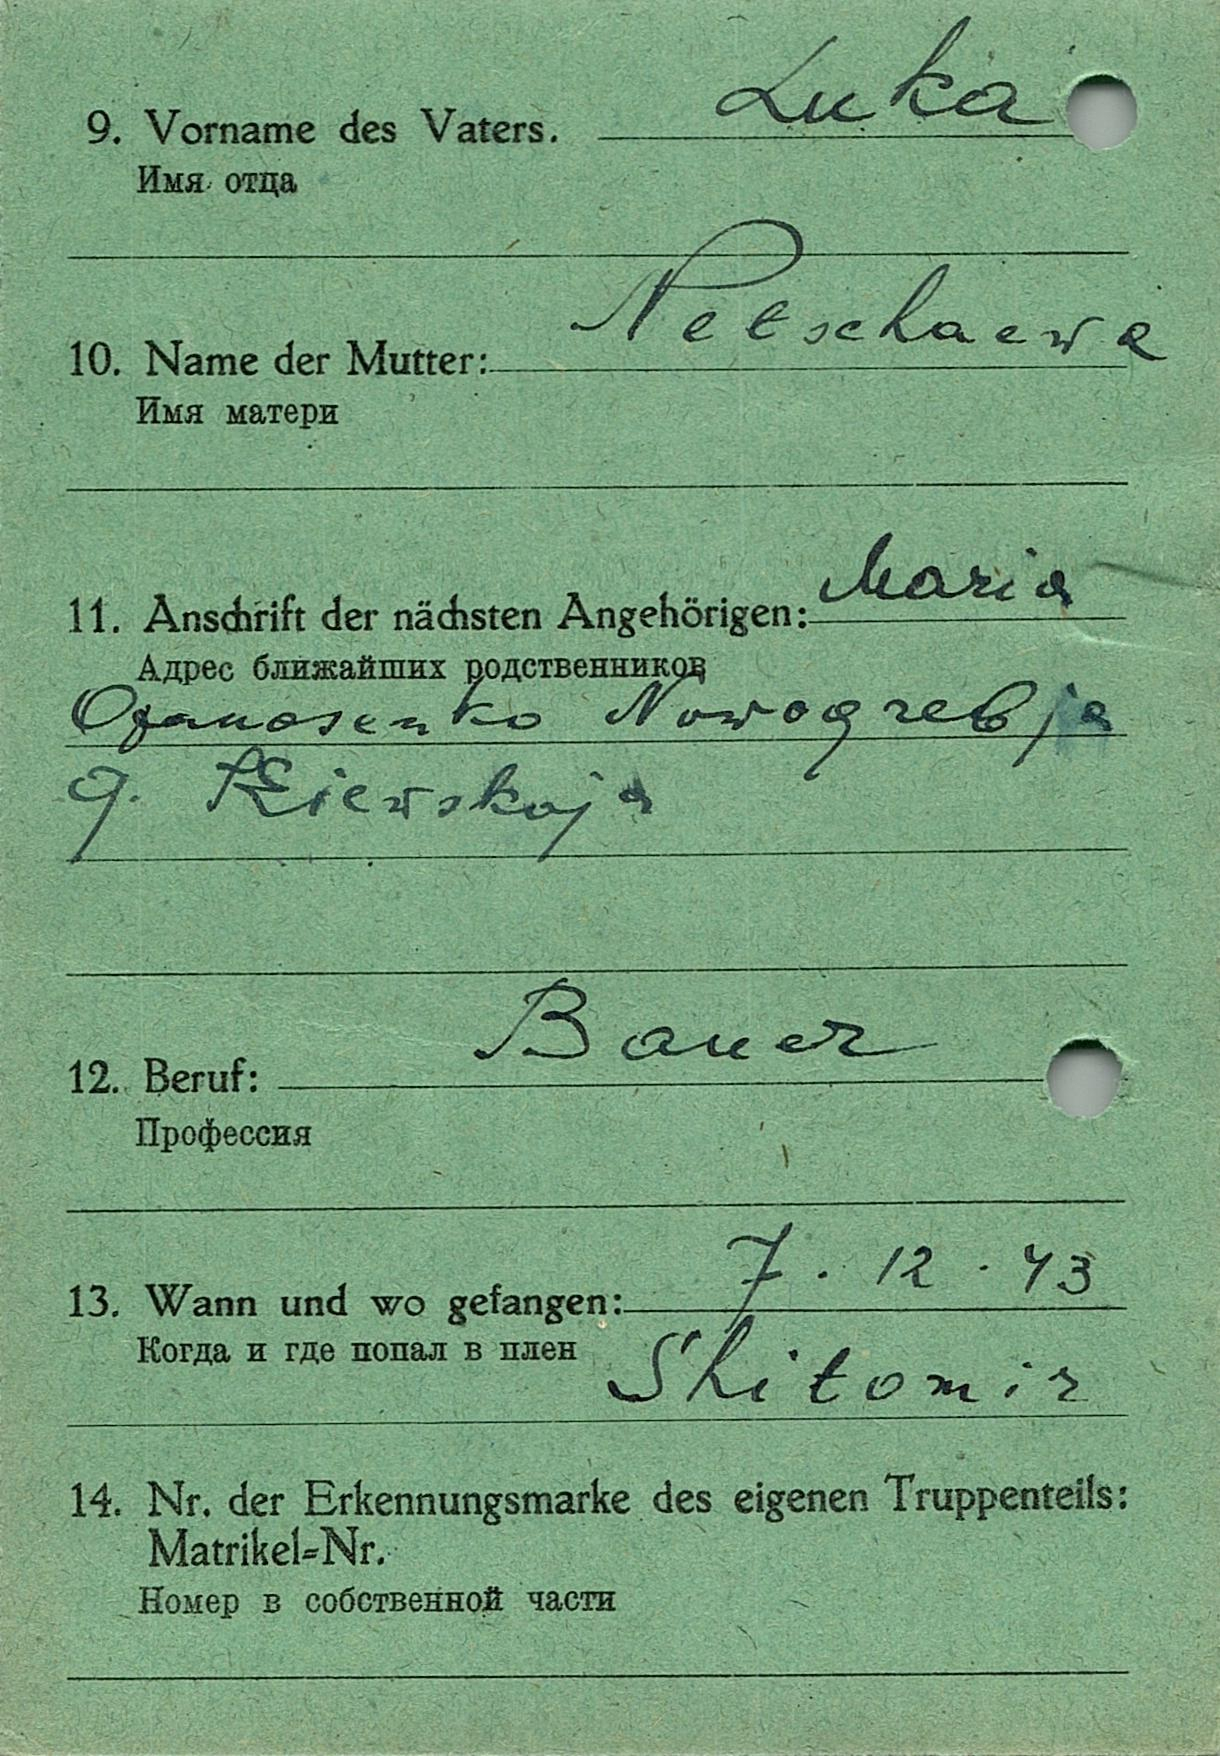 9. Vorname des Vaters. Luka
Имя отца
10. Name der Mutter: Netschaewa
Имя матери
11. Anschrift der nächsten Angehörigen: Maria
Адрес ближайших родственников
Ofanasenko Nowogrebja
g. Kiewskaja
12. Beruf: Bauer
Профессия
13. Wann und wo gefangen: 7. 12. 43
Когда и где попал в плен Shitomir
14. Nr. der Erkennungsmarke des eigenen Truppenteils:
Matrikel-Nr.
Номер в собственной части